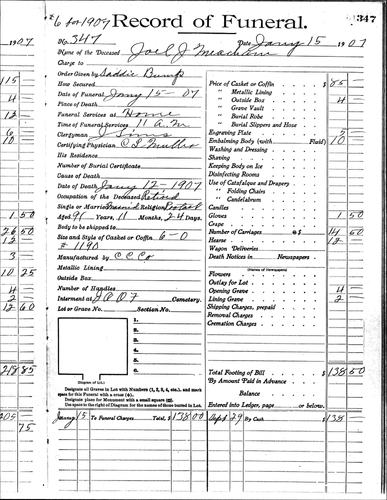 #6 for 1907 Record of Funeral. 347
1907 No. 347 Date Jany 15 1907
Name of the Deceased Joel J Meacham
Charge to
Order Given by Saddie Bump
How Secured
Date of Funeral Jany 15 - 07
Place of Death
Funeral Services at Home
Time of Funeral Services 11 A.M.
Clergyman J Sims
Certifying Physician
His Residence
Number of Burial Certificate
Cause of Death
Date of Death Jany 12 - 1907
Occupation of the Deceased Retired
Single or Married Religion
Aged 91 Years, 11 Months, 24 Days.
Body to be shipped to
Size and Style of Casket or Coffin 6-0
# 1190
Manufactured by C C Co
Metallic Lining
Outside Box
Number of Handles
Interment at I O O F Cemetery.
Lot or Grave No. Section No.
1.
2.
3.
4.
5.
6.
(Diagram of Lot.)
Designate all Graves in Lot with Numbers (1, 2, 3, 4, etc.), and mark
space for this Funeral with a cross (+).
Designate place for Monument with a small square (□).
Use space to the right of Diagram for names of those buried in Lot.
Price of Casket or Coffin $ 85 —
" Metallic Lining
" Outside Box 4 —
" Grave Vault
" Burial Robe
" Burial Slippers and Hose
Engraving Plate 5 —
Embalming Body (with Fluid) 10 —
Washing and Dressing
Shaving
Keeping Body on Ice
Disinfecting Rooms
Use of Catafalque and Drapery
" Folding Chairs
" Candelabrum
Candles
Gloves 1 50
Crape
Number of Carriages @ $ 14 50
Hearse 12 —
Wagon Deliveries
Death Notices in Newspapers
(Names of Newspapers)
Flowers
Outlay for Lot
Opening Grave 4 —
Lining Grave 2 —
Shipping Charges, prepaid
Removal Charges
Cremation Charges
Total Footing of Bill $ 138 50
By Amount Paid in Advance
Balance
Entered into Ledger, page or below.
Jany 15 To Funeral Charges Total, $ 138 00 Sept 29 By Cash $ 138 —
115
4
12
6
10
1 50
26 50
12
3
10 25
4
2
12 60
218 85
205
75